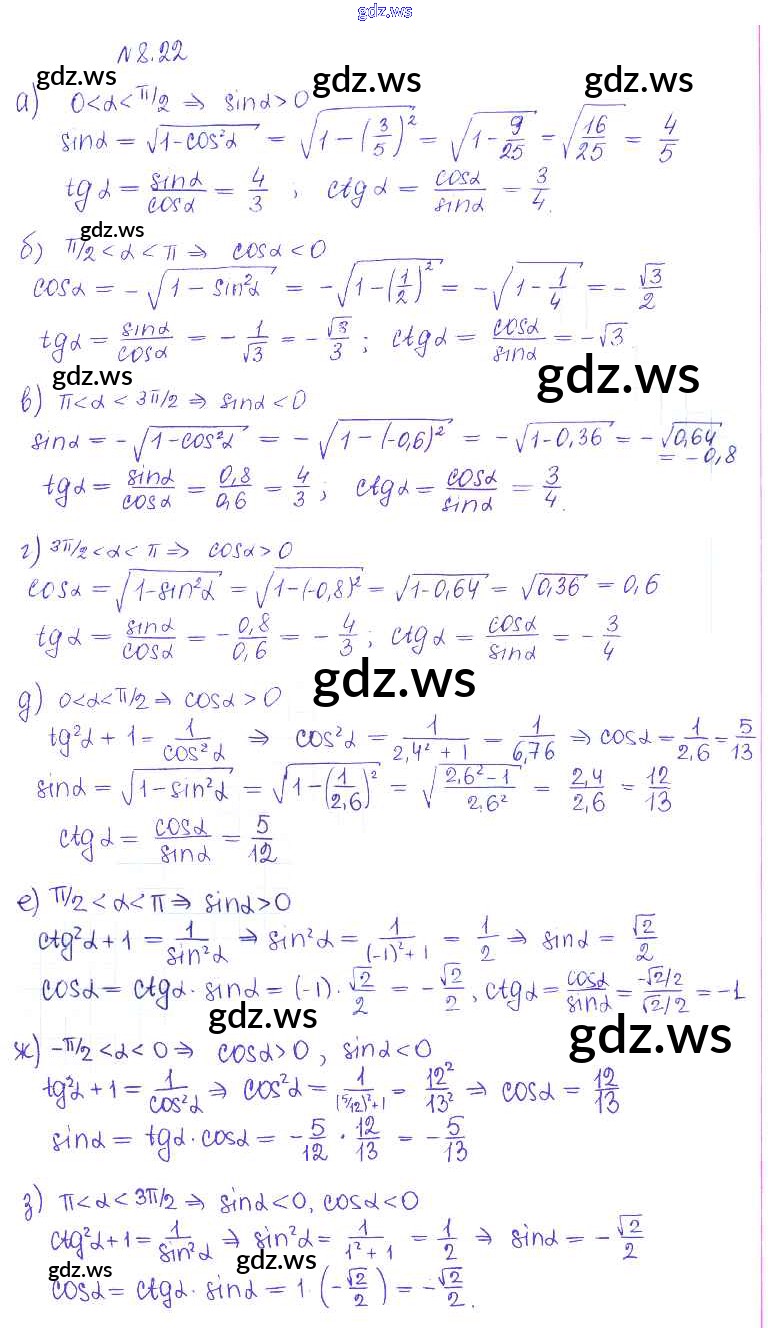 gdz.ws
N 8.22
gdz.ws gdz.ws
а) 0<α<π/2 ⇒ sinα>0
sinα = √(1-cos²α) = √(1-(3/5)²) = √(1-9/25) = √(16/25) = 4/5
tgα = sinα/cosα = 4/3 ; ctgα = cosα/sinα = 3/4.
gdz.ws
б) π/2<α<π ⇒ cosα<0
cosα = -√(1-sin²α) = -√(1-(1/2)²) = -√(1-1/4) = -√3/2
tgα = sinα/cosα = -1/√3 = -√3/3 ; ctgα = cosα/sinα = -√3.
gdz.ws gdz.ws
в) π<α<3π/2 ⇒ sinα<0
sinα = -√(1-cos²α) = -√(1-(-0,6)²) = -√(1-0,36) = -√0,64
= -0,8
tgα = sinα/cosα = 0,8/0,6 = 4/3 ; ctgα = cosα/sinα = 3/4.
г) 3π/2<α<π ⇒ cosα>0
cosα = √(1-sin²α) = √(1-(-0,8)²) = √(1-0,64) = √0,36 = 0,6
tgα = sinα/cosα = -0,8/0,6 = -4/3 ; ctgα = cosα/sinα = -3/4
gdz.ws
д) 0<α<π/2 ⇒ cosα>0
tg²α+1 = 1/cos²α ⇒ cos²α = 1/(2,4²+1) = 1/6,76 ⇒ cosα = 1/2,6 = 5/13
sinα = √(1-sin²α) = √(1-(1/2,6)²) = √((2,6²-1)/2,6²) = 2,4/2,6 = 12/13
ctgα = cosα/sinα = 5/12
е) π/2<α<π ⇒ sinα>0
ctg²α+1 = 1/sin²α ⇒ sin²α = 1/((-1)²+1) = 1/2 ⇒ sinα = √2/2
cosα = ctgα·sinα = (-1)·√2/2 = -√2/2, ctgα = cosα/sinα = (-√2/2)/(√2/2) = -1
gdz.ws gdz.ws
ж) -π/2<α<0 ⇒ cosα>0, sinα<0
tg²α+1 = 1/cos²α ⇒ cos²α = 1/((5/12)²+1) = 12²/13² ⇒ cosα = 12/13
sinα = tgα·cosα = -5/12·12/13 = -5/13
з) π<α<3π/2 ⇒ sinα<0, cosα<0
ctg²α+1 = 1/sin²α ⇒ sin²α = 1/(1²+1) = 1/2 ⇒ sinα = -√2/2
gdz.ws gdz.ws
cosα = ctgα·sinα = 1·(-√2/2) = -√2/2.